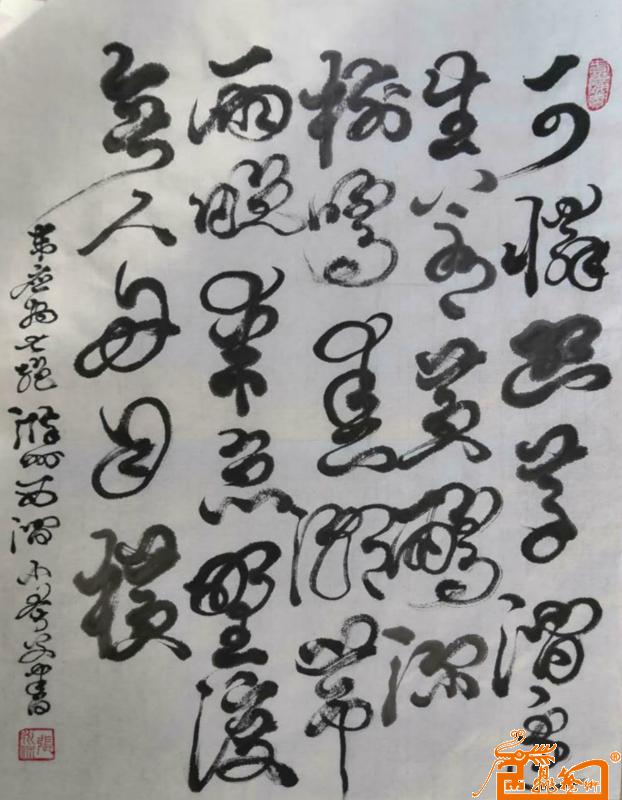 可憐幽草澗邊
生有黃鸝深
樹鳴春潮帶
雨晚來急野渡
無人舟自橫
韋應物七絕 滁州西澗 書